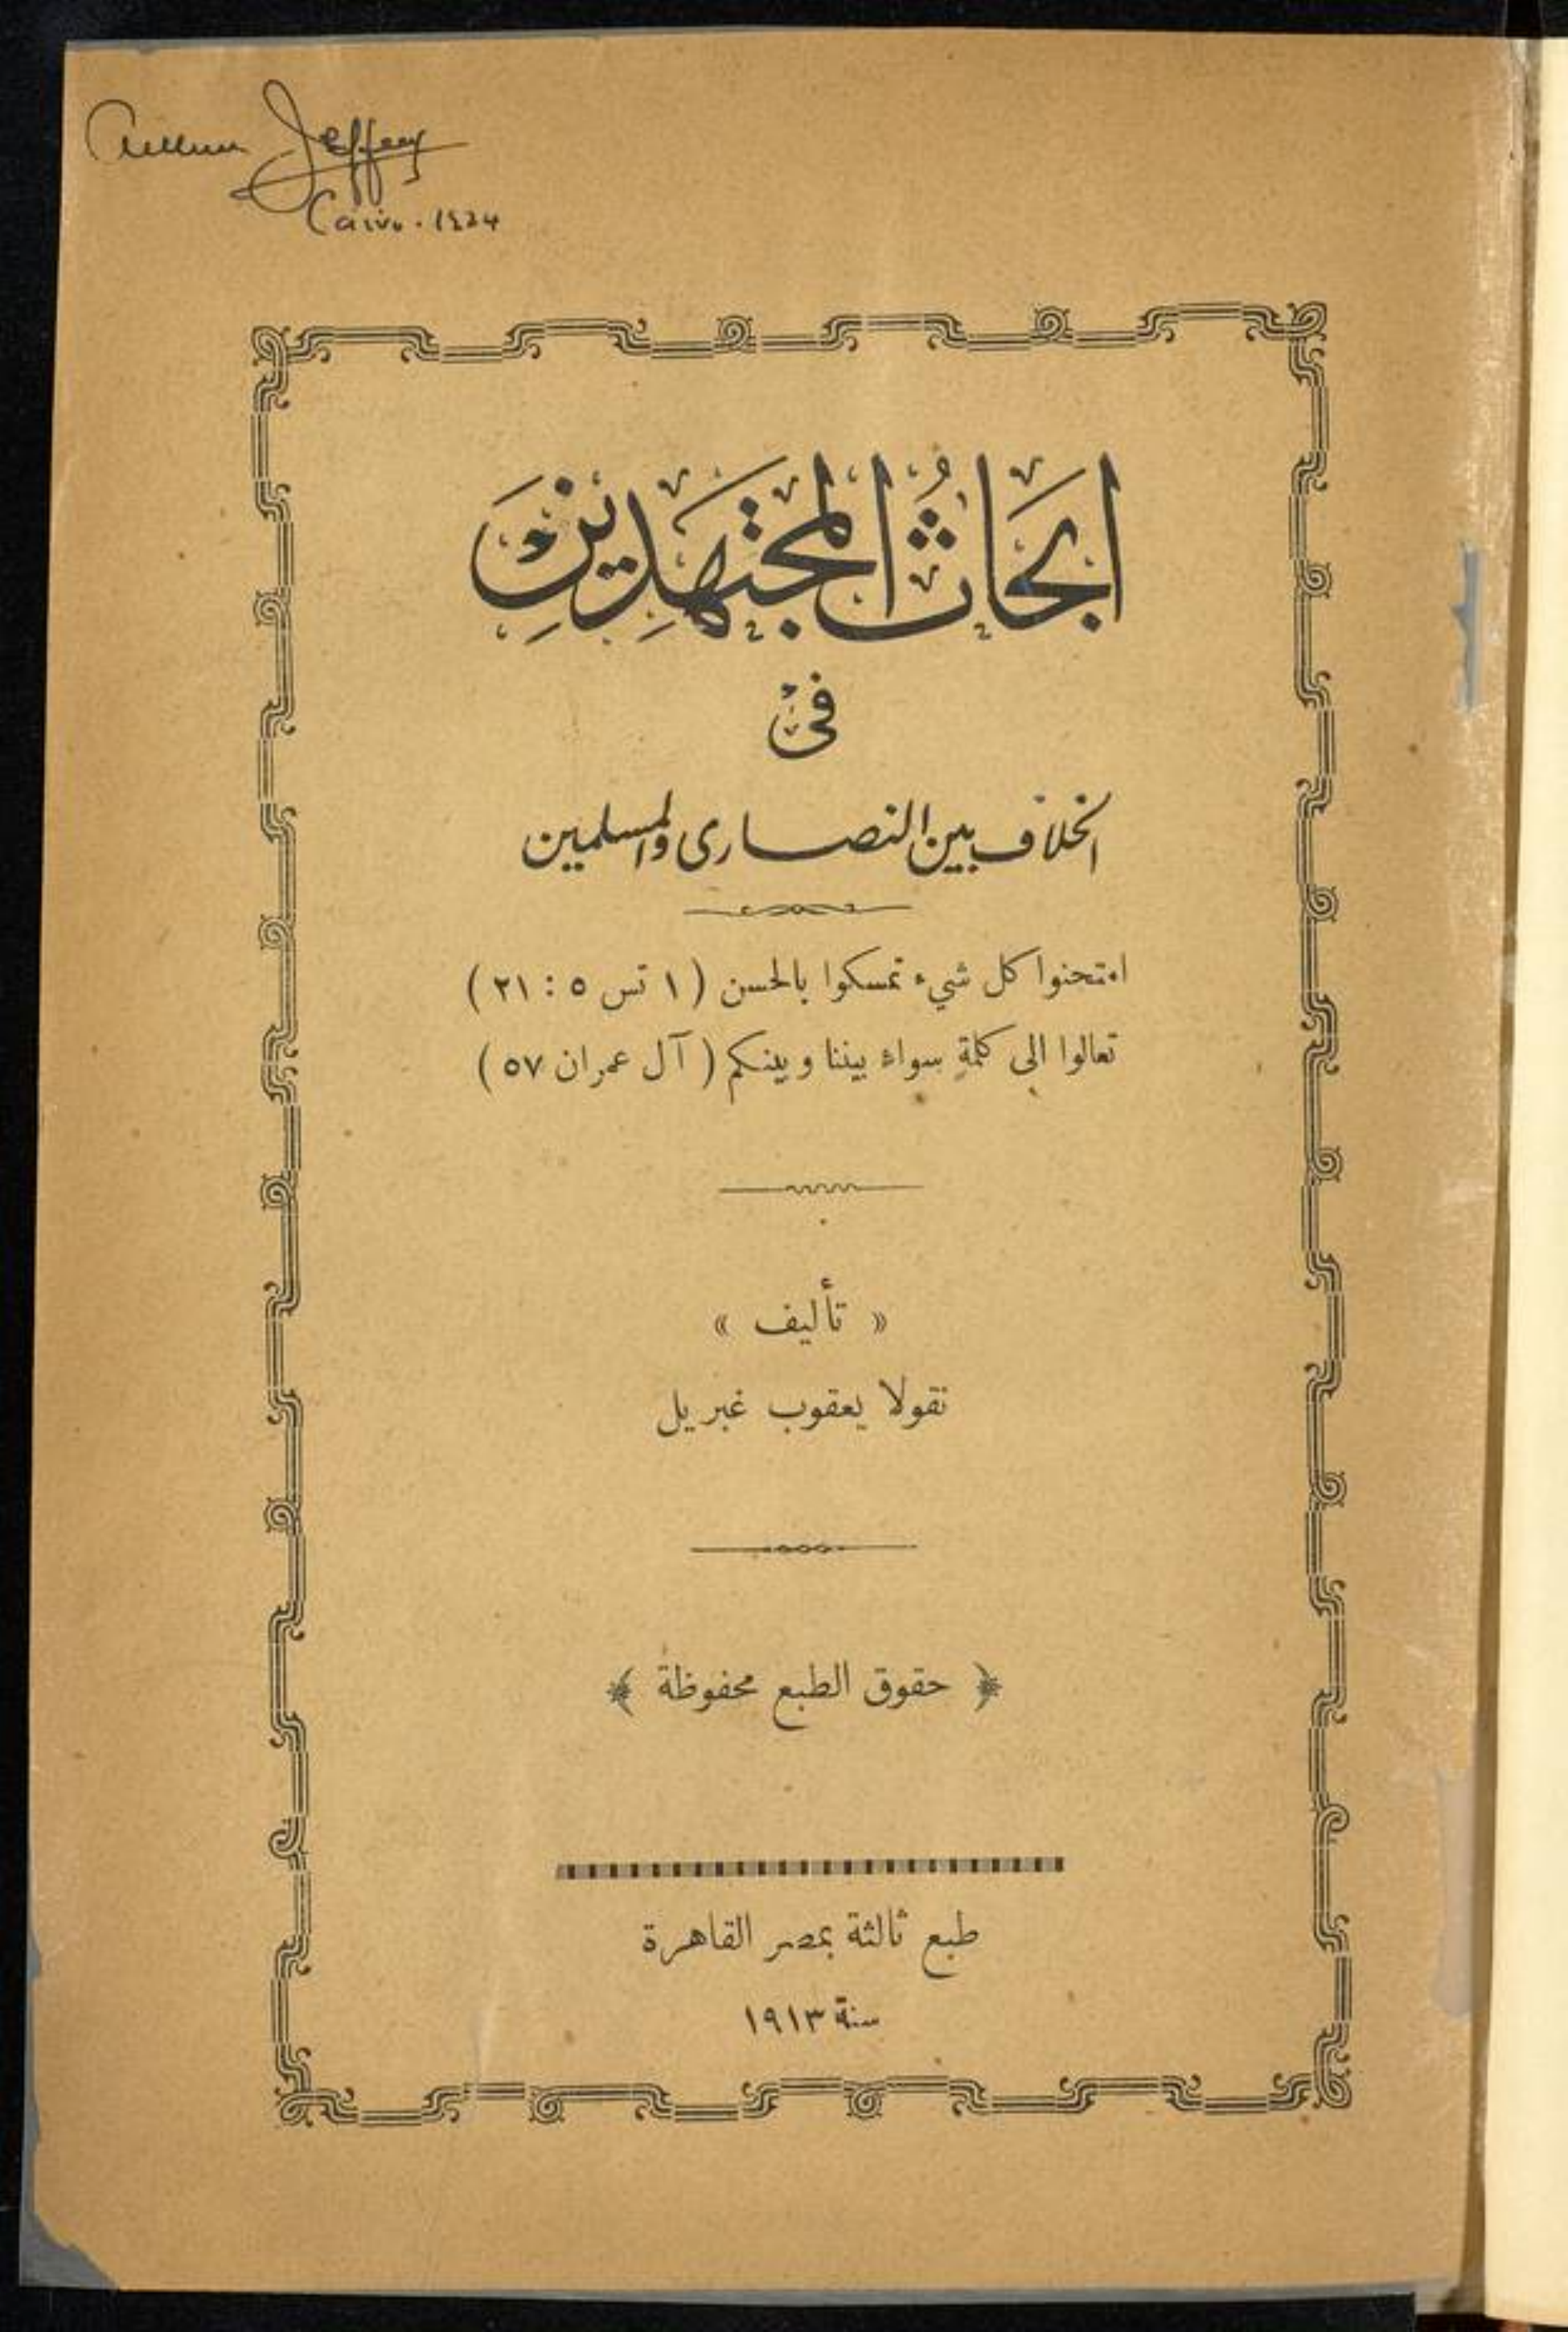 Arthur Jeffery
Cairo. 1924
ابحاثُ المجتهَدِينَ
فى
الخلاف بين النصارى والمسلمين
امتحنوا كل شيء تمسكوا بالحسن ( ١ تس ٥ : ٢١ )
تعالوا الى كلمةٍ سواءٍ بيننا وبينكم ( آل عمران ٥٧ )
« تأليف »
نقولا يعقوب غبريل
﴿ حقوق الطبع محفوظة ﴾
طبع ثالثة بمصر القاهرة
سنة ١٩١٣